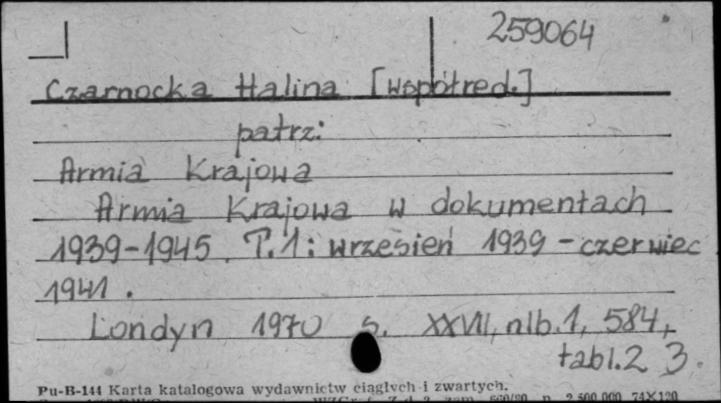 259064
Czarnocka Halina [współred.]
patrz:
Armia Krajowa
Armia Krajowa w dokumentach
1939-1945. T.1: wrzesień 1939 - czerwiec
1941.
Londyn 1970 s. XXVII, nlb.1, 584,
tabl.2 3.
Pu-B-144 Karta katalogowa wydawnictw ciągłych i zwartych.
2.500.000 74X120